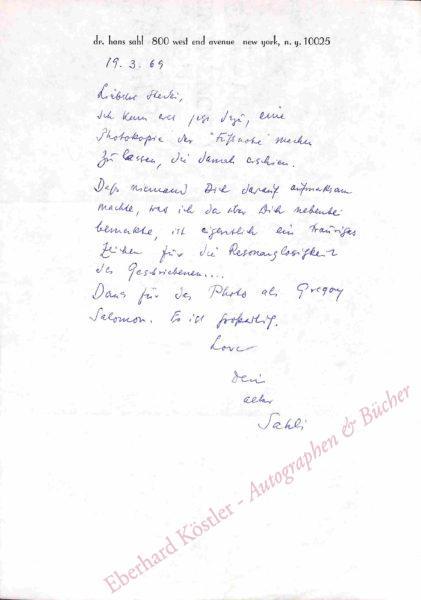 dr. hans sahl 800 west end avenue new york, n. y. 10025
19. 3. 69
Liebster
ich kam erst jetzt dazu, eine
Photokopie der "Fußnote" machen
zu lassen, die damals erschien.
Daß niemand Dich darauf aufmerksam
machte, was ich da über Dich nebenbei
bemerkte, ist eigentlich ein trauriges
Zeichen für die Resonanzlosigkeit
des Geschriebenen....
Dank für das Photo als Gregory
Salomon. Es ist großartig.
Love
Dein
alter
Sahli
Eberhard Köstler - Autographen & Bücher